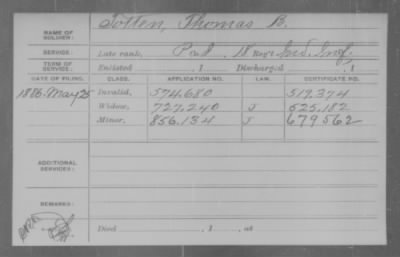 Totten, Thomas B.
NAME OF SOLDIER:
SERVICE: Late rank, Pvt. 18 Reg't Ind. Inf.
TERM OF SERVICE: Enlisted , 1 Discharged , 1
DATE OF FILING. CLASS. APPLICATION NO. LAW. CERTIFICATE NO.
1886. May 25 Invalid, 574.680 517.374
Widow, 727.240 J 525.182
Minor, 856.134 J 679562
ADDITIONAL SERVICES:
REMARKS:
Died , 1 , at